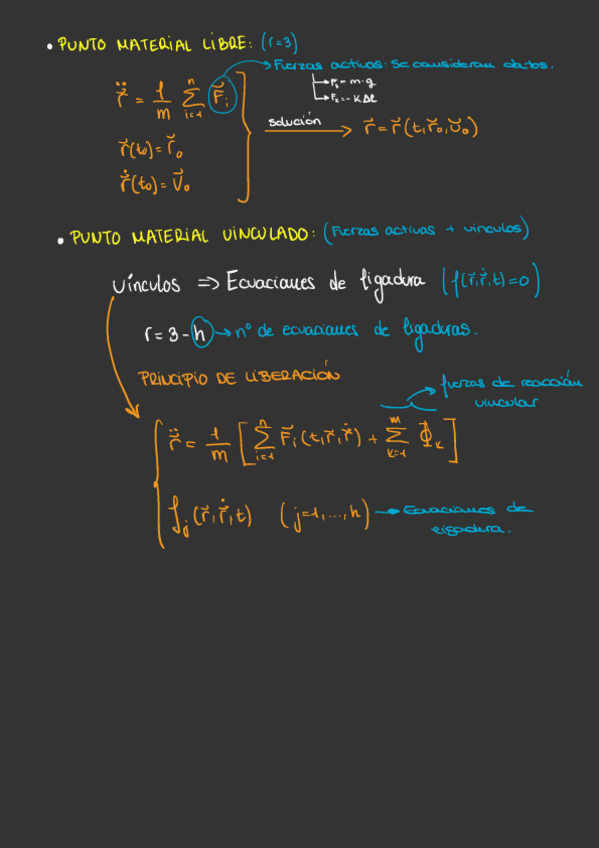 • PUNTO MATERIAL LIBRE: (r=3)
→ Fuerzas activas: Se consideran datos.
→ Fg = m·g
→ Fe = -KΔl
r̈⃗ = 1/m Σ_{i=1}^{n} F⃗i
solución → r⃗ = r⃗(t, r⃗o, v⃗o)
r⃗(to) = r⃗o
ṙ⃗(to) = v⃗o
• PUNTO MATERIAL VINCULADO: (Fuerzas activas + vínculos)
vínculos => Ecuaciones de ligadura (f(r⃗, ṙ⃗, t)=0)
r = 3 - h → nº de ecuaciones de ligaduras.
PRINCIPIO DE LIBERACIÓN
fuerzas de reacción
vincular
r̈⃗ = 1/m [ Σ_{i=1}^{n} F⃗i (t, r⃗, ṙ⃗) + Σ_{k=1}^{m} Φ⃗k ]
fj (r⃗, ṙ⃗, t) (j=1,...,h) → Ecuaciones de
ligadura.